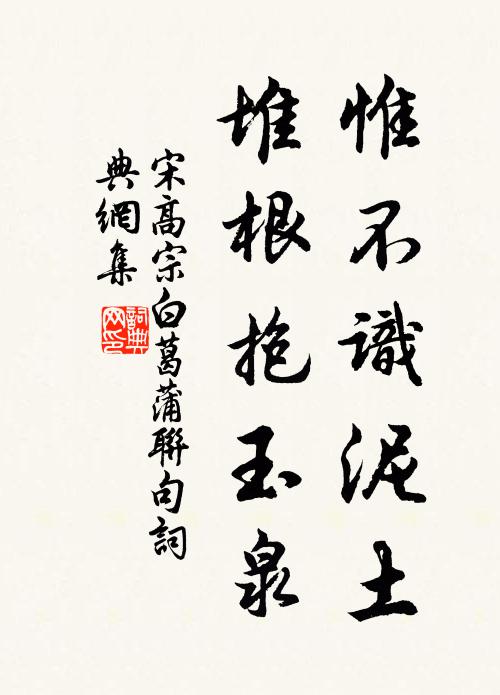 惟不識泥土
堆根抱玉泉
宋高宗白菖蒲聯句詞
典網集
詞典
网印